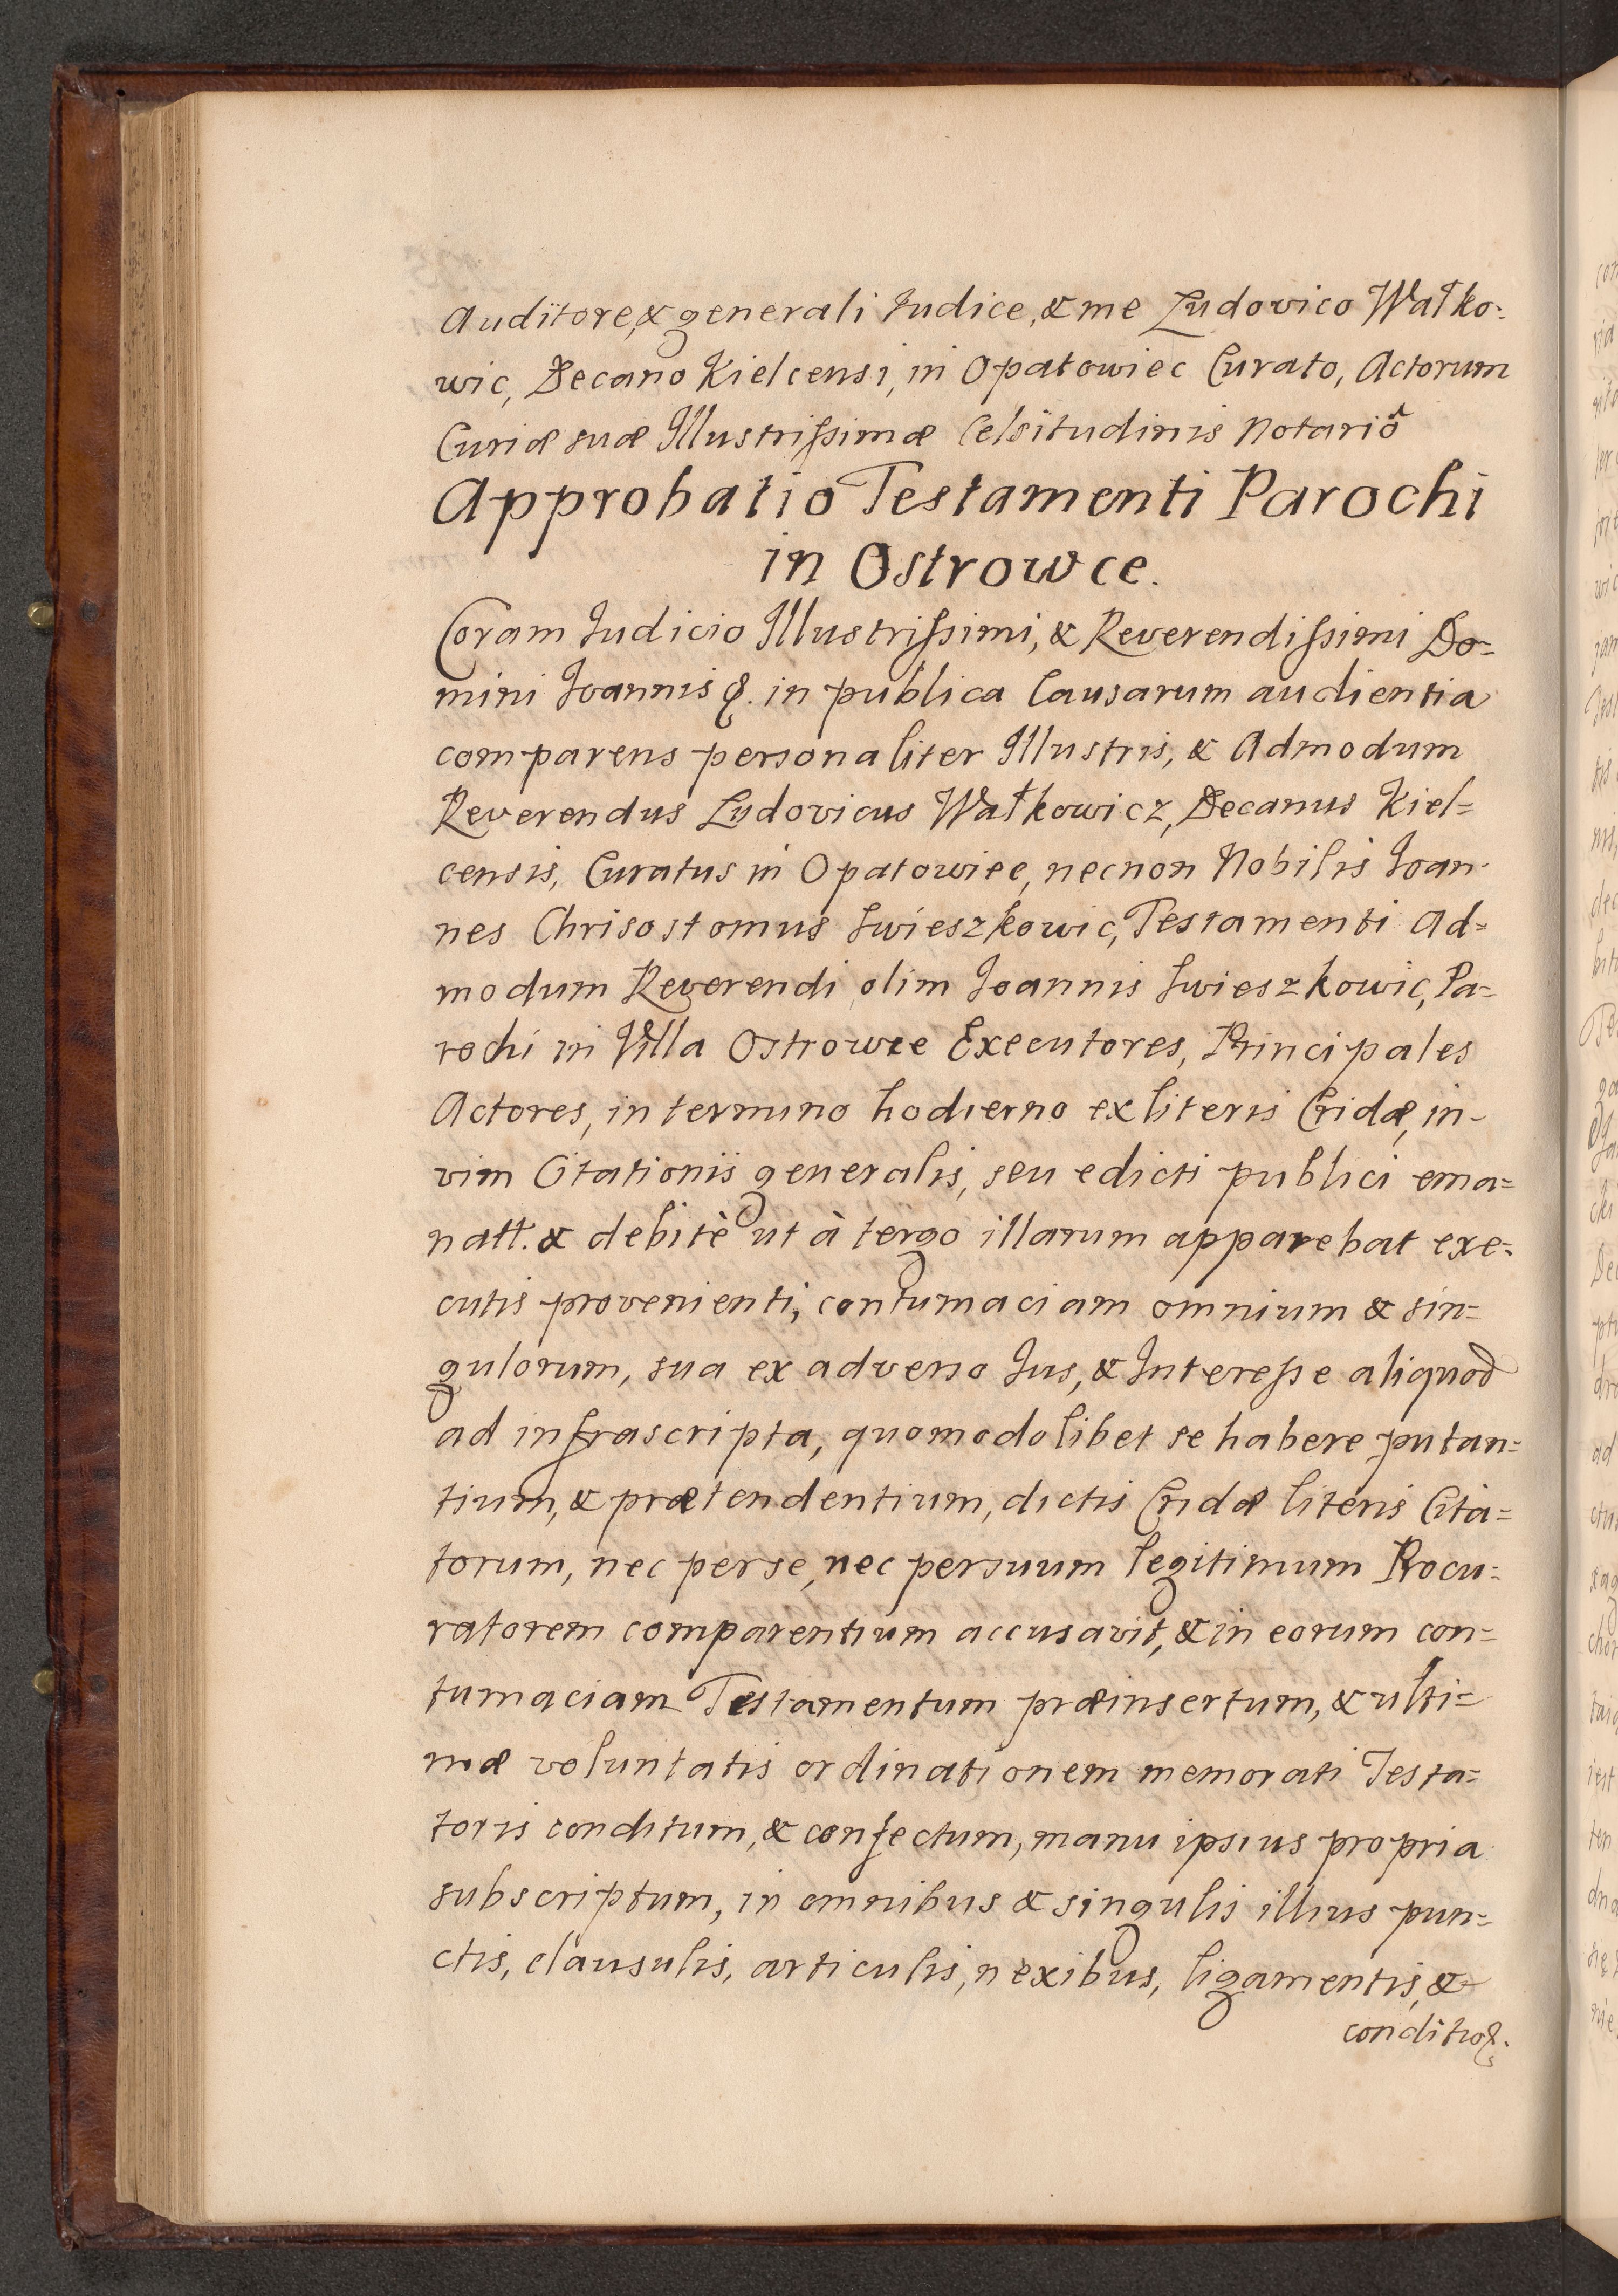 Auditore, & generali Iudice, & me Ludovico Wałko-
wic, Decano Kielcensi, in Opatowiec Curato, Actorum
Curiæ suæ Illustrißimæ Celsitudinis Notariô
Approbatio Testamenti Parochi
in Ostrowce.
Coram Iudicio Illustrißimi, & Reverendißimi Do=
mini Ioannis &. in publica Causarum audientia
comparens personaliter Illustris, & Admodum
Reverendus Ludovicus Wałkowicz, Decanus Kiel=
censis, Curatus in Opatowiec, necnon Nobilis Ioan-
nes Chrisostomus Swieszkowic, Testamenti Ad=
modum Reverendi olim Ioannis Swieszkowic, Pa=
rochi in Villa Ostrowce Executores, Principales
Actores, in termino hodierno ex literis Cridæ, in-
vim Citationis generalis, seu edicti publici ema=
natt. & debitè ut à tergo illarum apparebat exe=
cutis provenienti, contumaciam omnium & sin=
gulorum, sua ex adverso Ius, & Intereße aliquod
ad infrascripta, quomodolibet se habere putan=
tium, & prætendentium, dictis Cridæ literis Cita=
torum, nec per se, nec per suum legitimum Procu=
ratorem comparentium accusavit, & in eorum con=
tumaciam Testamentum præinsertum, & ulti=
mæ voluntatis ordinationem memorati Testa=
toris conditum, & confectum, manu ipsius propria
subscriptum, in omnibus & singulis illius pun=
ctis, clausulis, articulis, nexibus, ligamentis, &